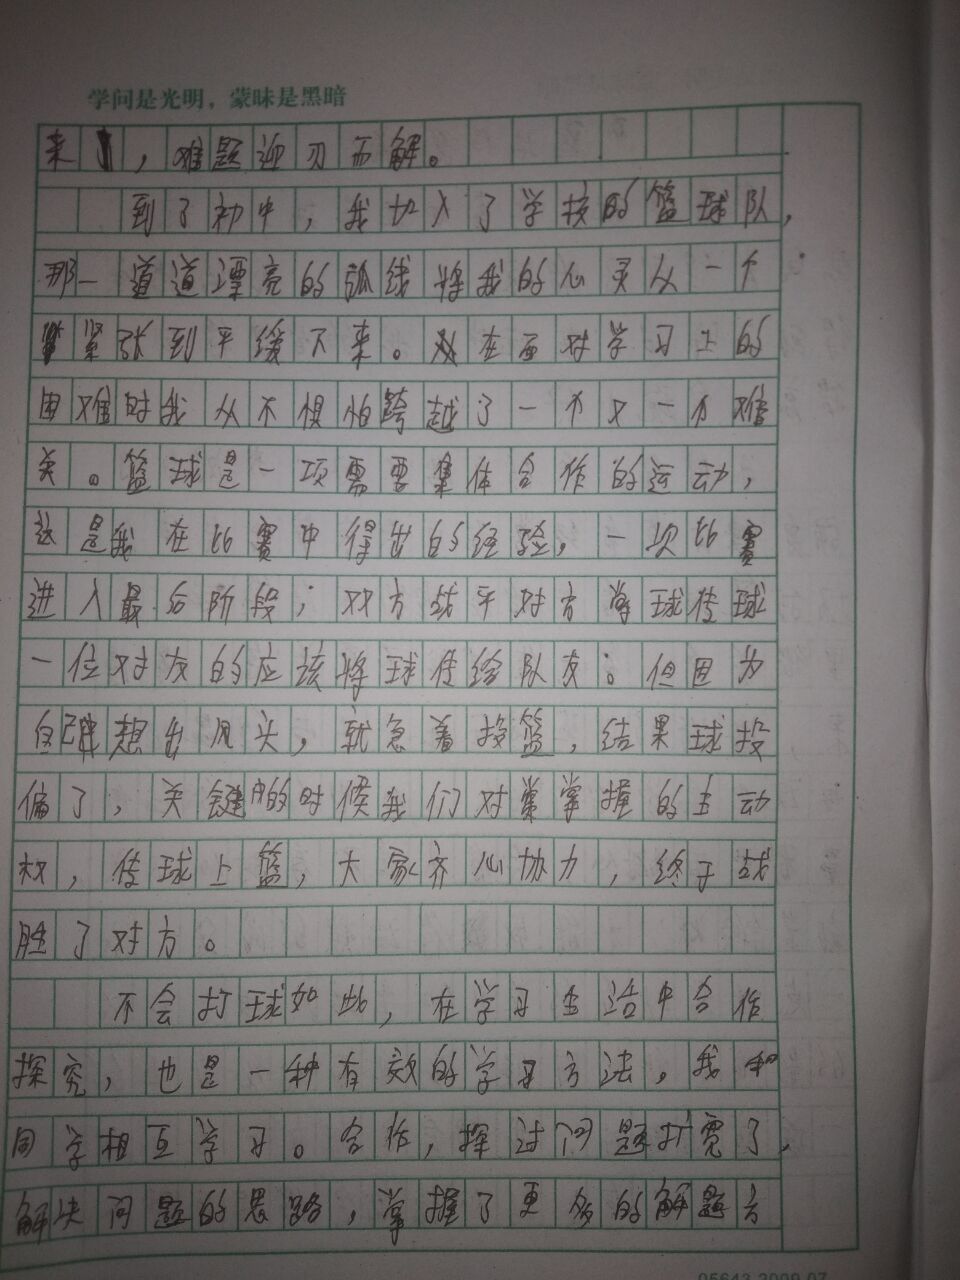 学问是光明，蒙昧是黑暗
来，难题迎刃而解。
到了初中，我加入了学校的篮球队，
那一道道漂亮的弧线将我的心灵从一个
紧张到平缓下来。在面对学习上的
困难时我从不惧怕跨越了一个又一个难
关。篮球是一项需要集体合作的运动，
这是我在比赛中得出的经验，一项比赛
进入最后阶段；双方战平对方掌球传球
一位对友的应该将球传给队友。但因为
自己想出风头，就急着投篮，结果球投
偏了，关键的时候我们对掌握的主动
权，传球上篮，大家齐心协力，终于战
胜了对方。
不会打球如此，在学习生活中合作
探究，也是一种有效的学习方法，我和
同学相互学习。合作，探过问题打宽了，
解决问题的思路，掌握了更多的解题方